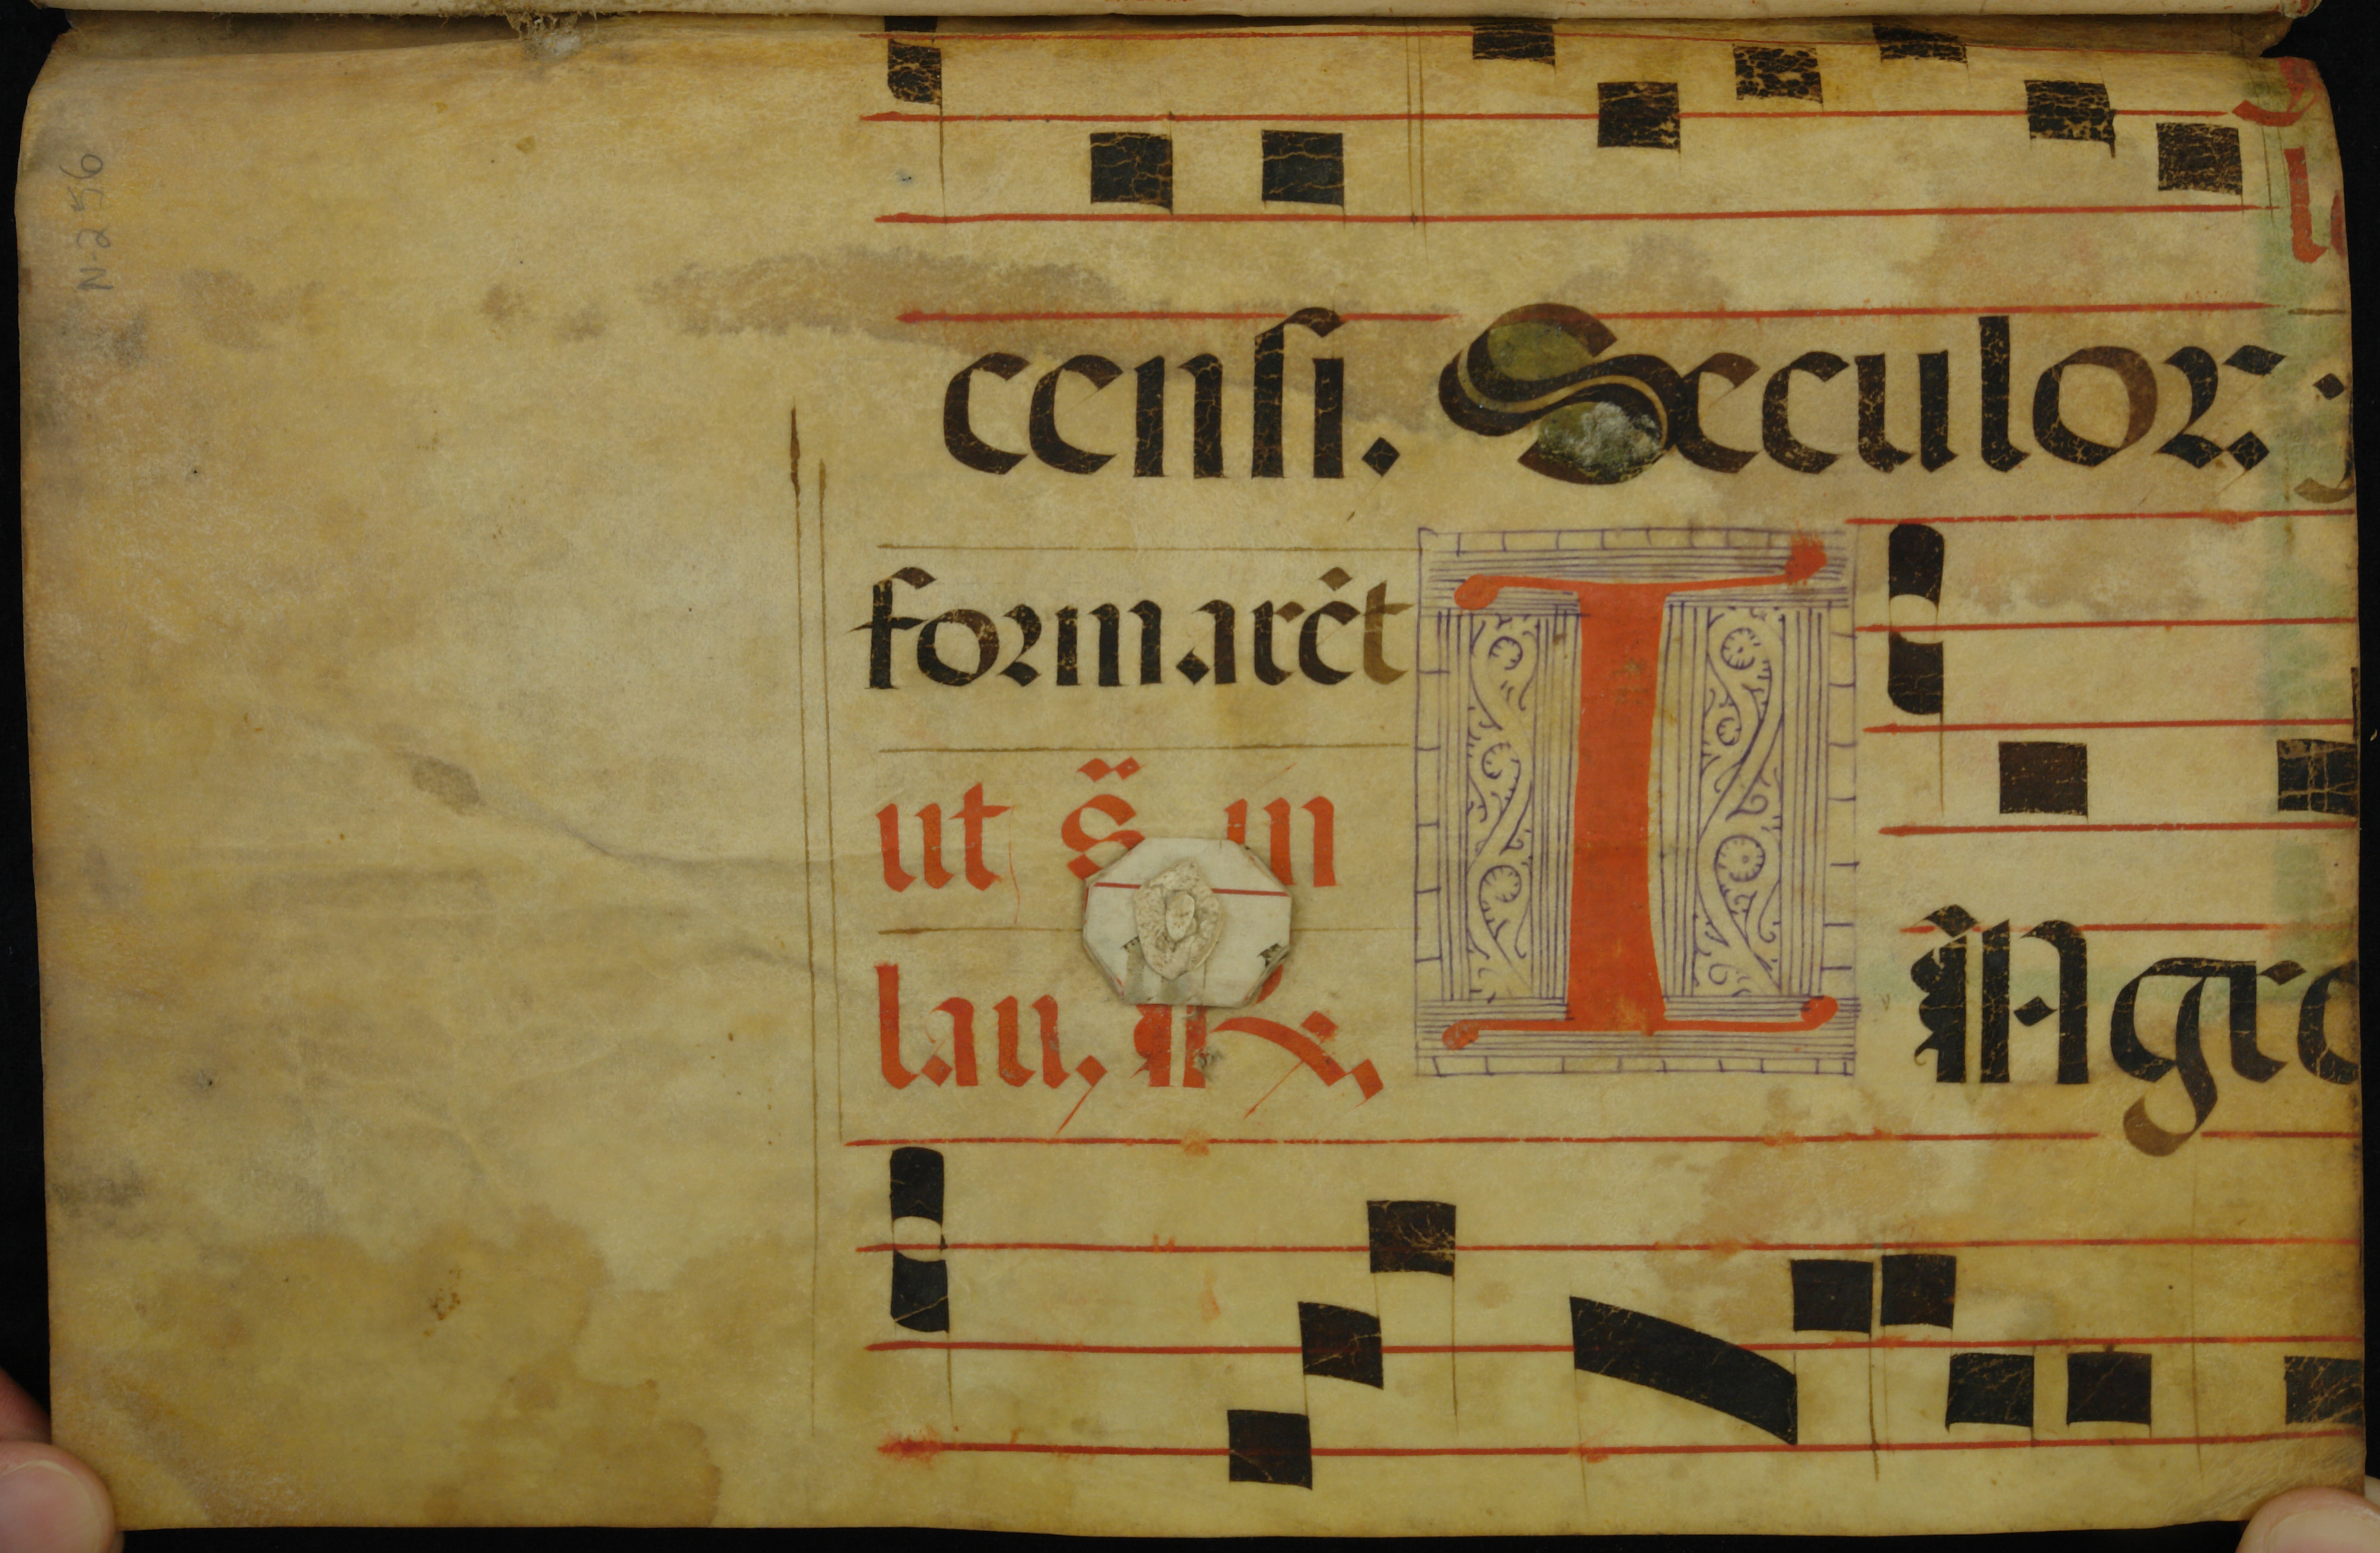 N-256
censi. Sæculor.
formarēt
ut s̈ in
lau, R.
I
INgre